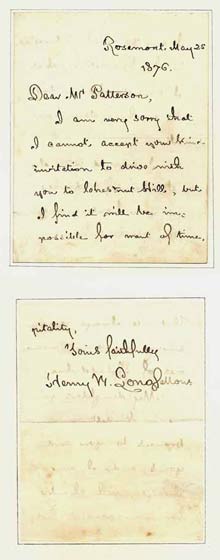 Rosemont. May 25
1876.
Dear Mr Patterson,
I am very sorry that
I cannot accept your kind
invitation to drive with
you to Chestnut Hill, but
I find it will be im-
possible for want of time.
pitality,
Yours faithfully
Henry W. Longfellow